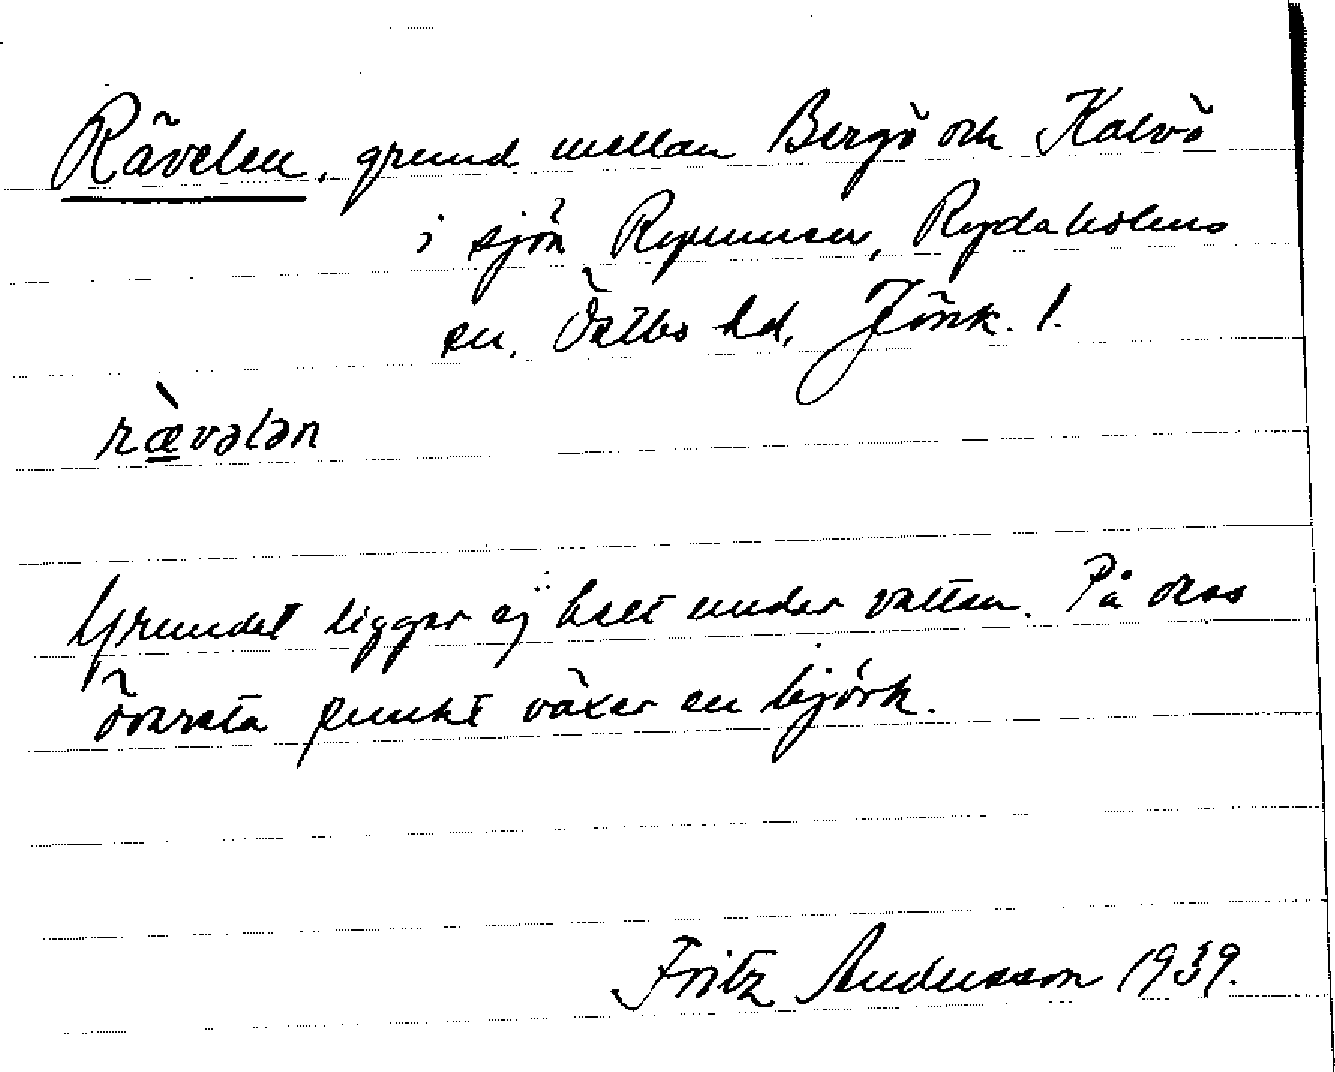 Rävelen, grund mellan Bergö och Kalvö
i sjön Rymmen, Rydaholms
sn, Östbo hd, Jönk. l.
ræ̀vələn
Grundet ligger ej helt under vatten. På dess
översta punkt växer en björk.
Fritz Andersson 1939.